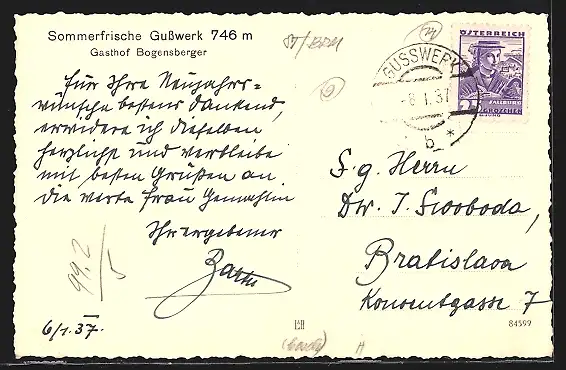 Sommerfrische Gußwerk 746 m
Gasthof Bogensberger
Für Ihre Neujahrs-
wünsche bestens dankend,
erwidere ich dieselben
herzlichst und verbleibe
mit besten Grüßen an
die werte Frau Gemahlin
Ihr ergebener
6/1.37.
99.2
5
ÖSTERREICH
GUSSWERK
-6.I.37
b *
SALZBURG
GROSCHEN
S. g. Herrn
Dr. J. Swoboda,
Bratislava
Konventgasse 7
84599